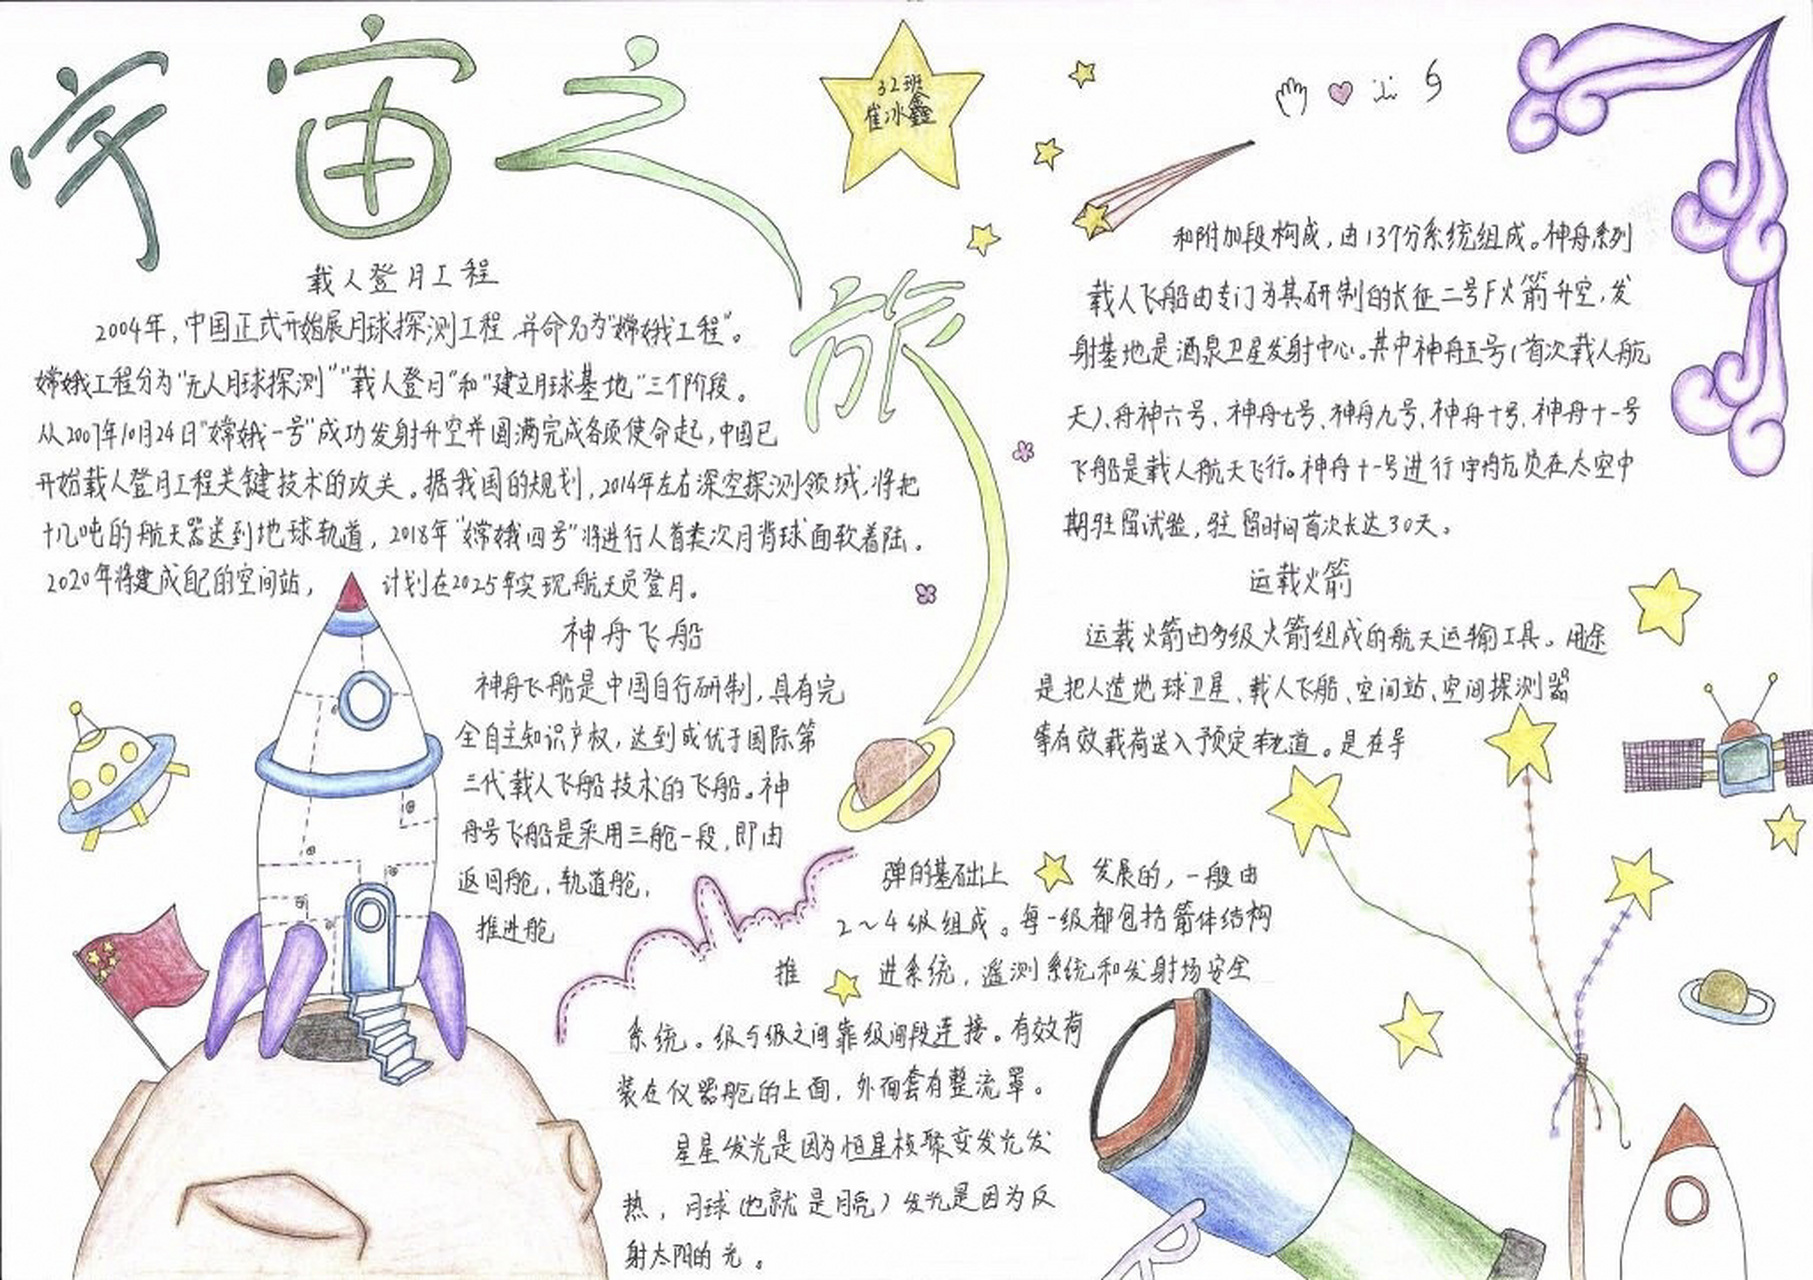 宇宙之旅
32班
崔冰鑫
载人登月工程
2004年,中国正式开始展月球探测工程,并命名为“嫦娥工程”。
嫦娥工程分为“无人月球探测”“载人登月”和“建立月球基地”三个阶段。
从2007年10月24日“嫦娥一号”成功发射升空并圆满完成各项使命起,中国已
开始载人登月工程关键技术的攻关。据我国的规划,2014年左右深空探测领域,将把
十几吨的航天器送到地球轨道,2018年“嫦娥四号”将进行人首类次月背球面软着陆。
2020年将建成自己的空间站, 计划在2025年实现航天员登月。
神舟飞船
神舟飞船是中国自行研制,具有完
全自主知识产权,达到或优于国际第
三代载人飞船技术的飞船。神
舟号飞船是采用三舱一段,即由
返回舱,轨道舱,
推进舱
和附加段构成,由13个分系统组成。神舟系列
载人飞船由专门为其研制的长征二号F火箭升空,发
射基地是酒泉卫星发射中心。其中神舟五号(首次载人航
天)、舟神六号、神舟七号、神舟九号、神舟十号、神舟十一号
飞船是载人航天飞行。神舟十一号进行宇航员在太空中
期驻留试验,驻留时间首次长达30天。
运载火箭
运载火箭由多级火箭组成的航天运输工具。用途
是把人造地球卫星、载人飞船、空间站、空间探测器
等有效载荷送入预定轨道。是在导
弹的基础上 发展的,一般由
2~4级组成。每一级都包括箭体结构
推 进系统,遥测系统和发射场安全
系统。级与级之间靠级间段连接。有效荷
装在仪器舱的上面,外面套有整流罩。
星星发光是因为恒星核聚变发光发
热,月球(也就是月亮)发光是因为反
射太阳的光。